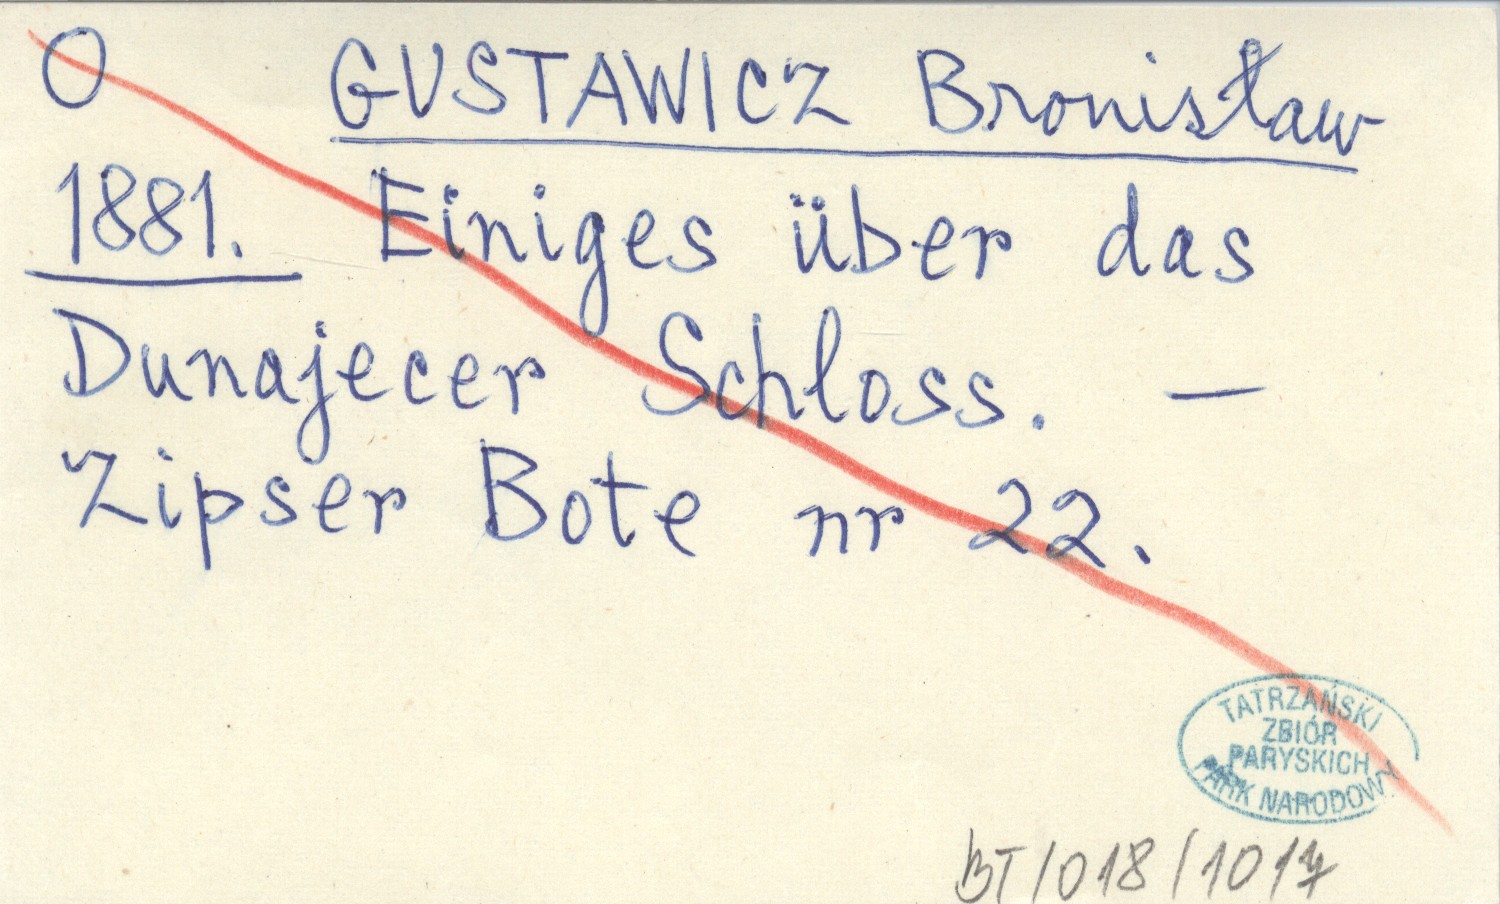 O GUSTAWICZ Bronisław
1881. Einiges über das
Dunajecer Schloss. —
Zipser Bote nr 22.
TATRZAŃSKI
ZBIÓR
PARYSKICH
PARK NARODOWY
BT/018/1017